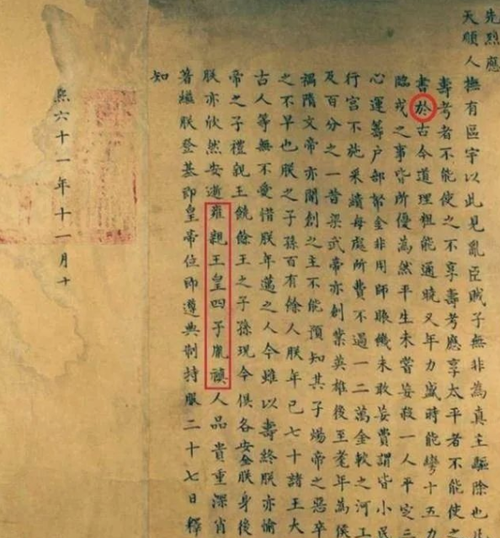 先烈應
天順人撫有區宇以此見亂臣賊子無非為真主驅除也
壽考者不能使之不享壽考應享太平者不能使之
書於古今道理粗能通曉又年力盛時能彎十五力
臨戎之事皆所優為然平生未嘗妄殺一人平定三
心運籌戶部帑金非用師賑饑未敢妄費謂皆小民
行宮不施采繢每處所費不過一二萬金較之河工
及百分之一昔梁武帝亦創業英雄後至耄年為侯
禍隋文帝亦開創之主不能預知其子煬帝之惡卒
之不早也朕之子孫百有餘人朕年已七十諸王大
古人等無不愛惜朕年邁之人今雖以壽終朕亦愉
帝之子禮親王饒餘王之子孫現今俱各安全朕身後
朕亦欣然安逝雍親王皇四子胤禛人品貴重深肖
著繼朕登基即皇帝位即遵典制持服二十七日釋
知
熙六十一年十一月十